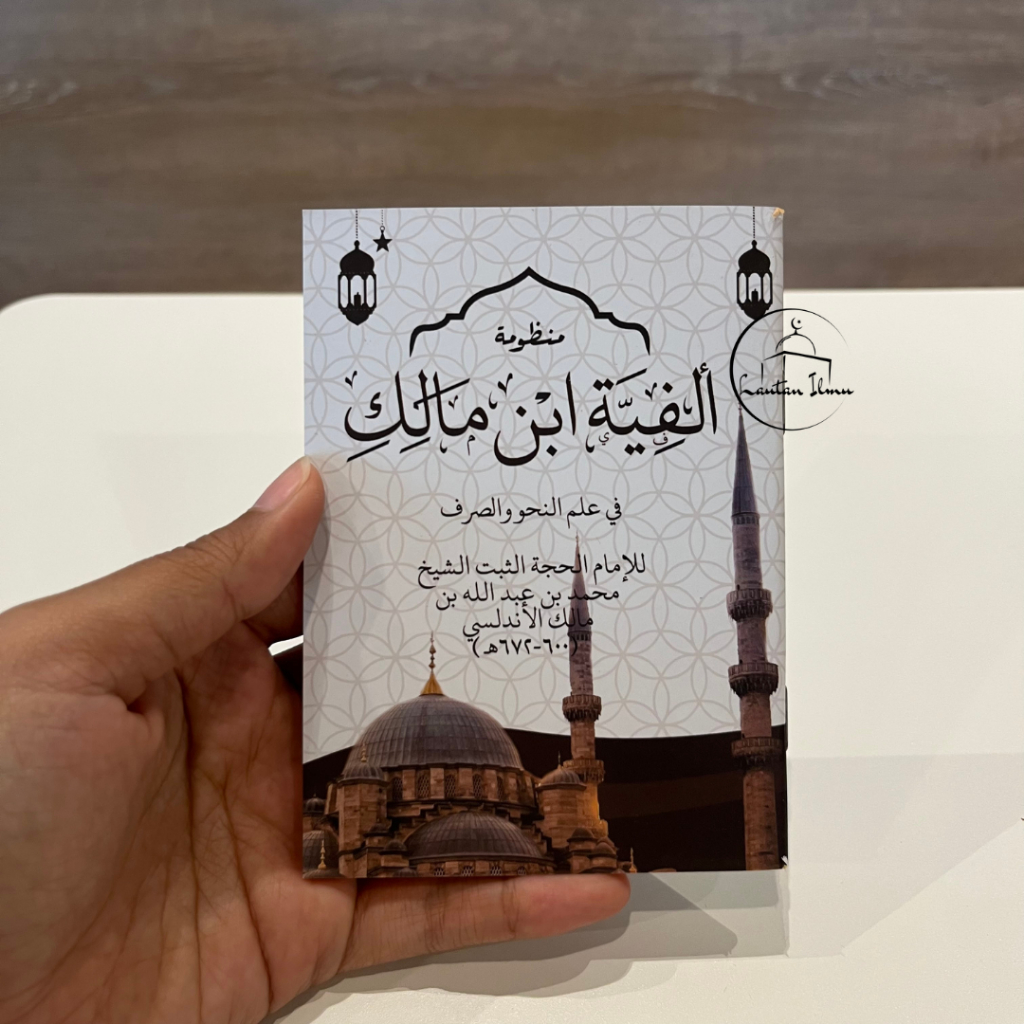 منظومة
ألفِيَّة ابْن مَالِكِ
في علم النحو والصرف
للإمام الحجة الثبت الشيخ
محمد بن عبد الله بن
مالك الأندلسي
(٦٠٠-٦٧٢هـ)
Lautan Ilmu